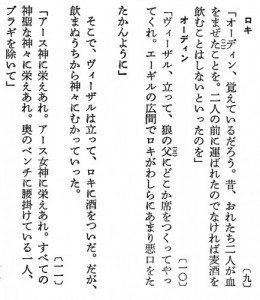 ロキ
〔九〕
「オーディン、覚えているだろう。昔、おれたち二人が血
をまぜたことを。二人の前に運ばれたのでなければ麦酒を
飲むことはしないといったのを」
オーディン
〔一〇〕
「ヴィーザル、立って、狼の父にどこか席をつくってやっ
てくれ。エーギルの広間でロキがわしらにあまり悪口をた
たかんように」
そこで、ヴィーザルは立って、ロキに酒をついだ。だが、
飲まぬうちから神々にむかっていった。
〔一一〕
「アース神に栄えあれ。アース女神に栄えあれ。すべての
神聖な神々に栄えあれ。奥のベンチに腰掛けている一人、
ブラギを除いて」